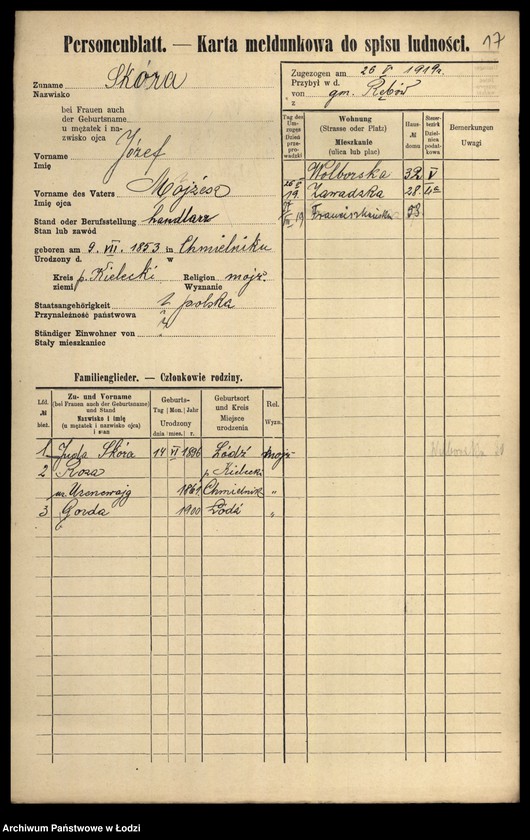 Personenblatt. — Karta meldunkowa do spisu ludności.
17
Zuname
Nazwisko
Skóra
bei Frauen auch
der Geburtsname
u mężatek i na-
zwisko ojca
Vorname
Imię
Józef
Vorname des Vaters
Imię ojca
Mojżesz
Stand oder Berufsstellung
Stan lub zawód
handlarz
geboren am 9. VII. 1853 in Chmielniku
Urodzony d. w
Kreis
ziemi
p. Kielecki
Religion
Wyznanie
mojż.
Staatsangehörigkeit
Przynależność państwowa
polska
Ständiger Einwohner von
Stały mieszkaniec
Zugezogen am
Przybył w d.
26 V 1919 r.
von
z
gm.
Tag des Um-
zuges
Dzień
prze-
prowadzki
Wohnung
(Strasse oder Platz)
Mieszkanie
(ulica lub plac)
Haus-
№
domu
Steuer-
bezirk
Dzielnica
podatkowa
Bemerkungen
Uwagi
Wolborska 32 V
19 Zawadzka 28
19 Franciszkańska 53
Familienglieder. — Członkowie rodziny.
Lfd.
№
bież.
Zu- und Vorname
(bei Frauen auch der Geburtsname)
und Stand
Nazwisko i imię
(u mężatek i nazwisko ojca)
i stan
Geburts-
Tag Mon. Jahr
Urodzony
dnia mies. r.
Geburtsort
und Kreis
Miejsce
urodzenia
Rel.
Wyzn.
1 Juda Skóra 14 VI 1896 Łódź mojż
2 Roza p. Kielecki
ur. 1861 Chmielnik "
3 1900 Łódź "
Archiwum Państwowe w Łodzi